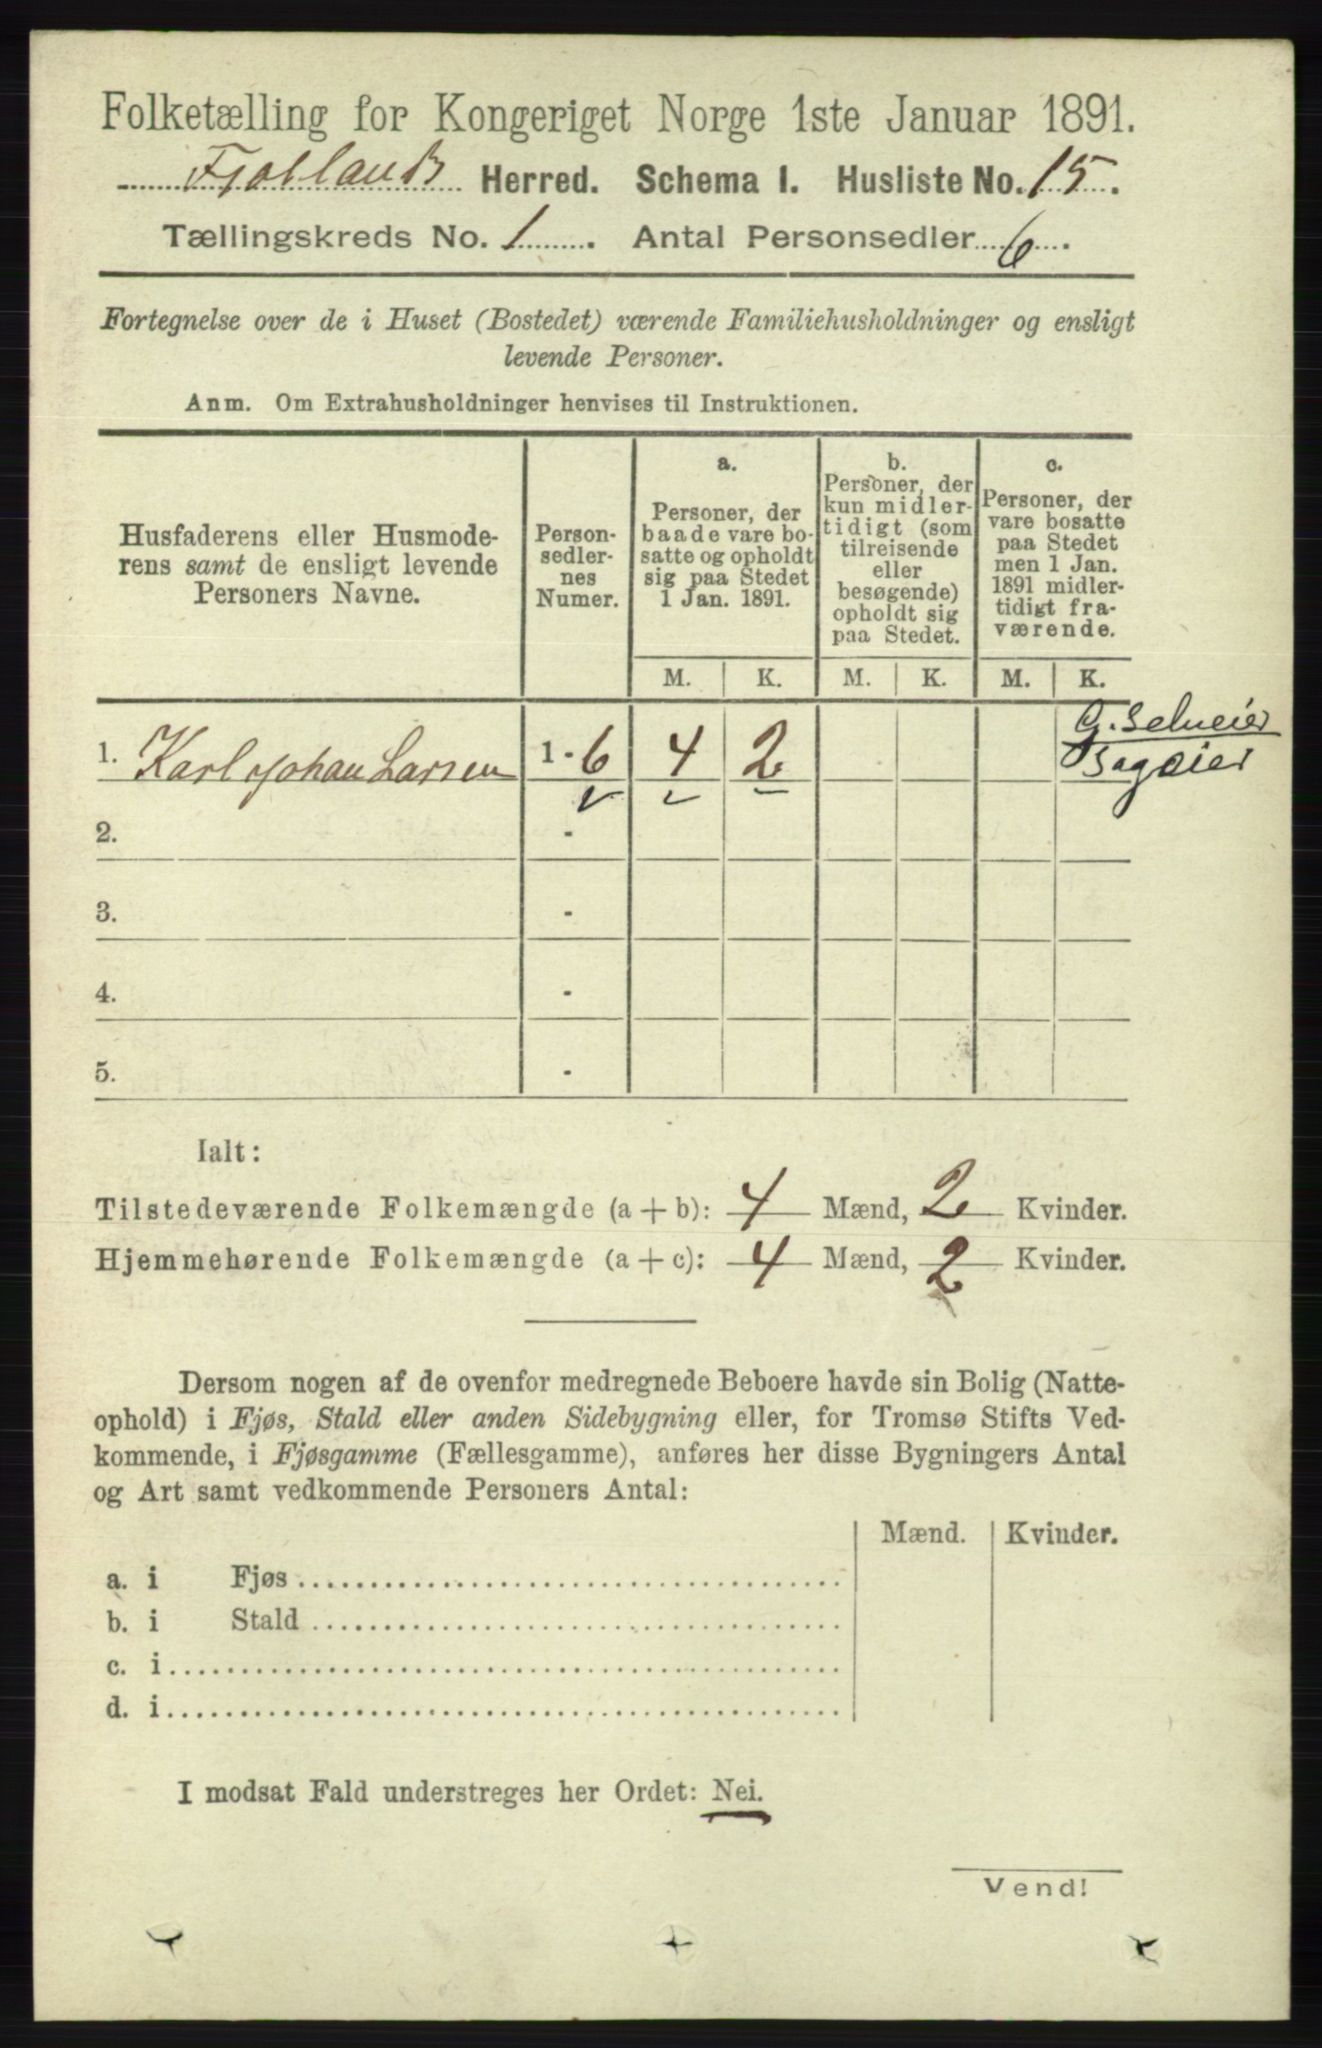 Folketælling for Kongeriget Norge 1ste Januar 1891.
Fjotland Herred. Schema 1. Husliste No. 15.
Tællingskreds No. 1. Antal Personsedler 6.
Fortegnelse over de i Huset (Bostedet) værende Familiehusholdninger og ensligt
levende Personer.
Anm. Om Extrahusholdninger henvises til Instruktionen.
Husfaderens eller Husmode-
rens samt de ensligt levende
Personers Navne.
Person-
sedler-
nes
Numer.
a.
Personer, der
baade vare bo-
satte og opholdt
sig paa Stedet
1 Jan. 1891.
b.
Personer, der
kun midler-
tidigt (som
tilreisende
eller
besøgende)
opholdt sig
paa Stedet.
c.
Personer, der
vare bosatte
paa Stedet
men 1 Jan.
1891 midler-
tidigt fra-
værende.
M. K. M. K. M. K.
G. Selveier
1. Karl Johan Larsen 1 - 6 4 2
2. -
3. -
4. -
5. -
Ialt:
Tilstedeværende Folkemængde (a + b): 4 Mænd, 2 Kvinder.
Hjemmehørende Folkemængde (a + c): 4 Mænd, 2 Kvinder.
Dersom nogen af de ovenfor medregnede Beboere havde sin Bolig (Natte-
ophold) i Fjøs, Stald eller anden Sidebygning eller, for Tromsø Stifts Ved-
kommende, i Fjøsgamme (Fællesgamme), anføres her disse Bygningers Antal
og Art samt vedkommende Personers Antal:
Mænd. Kvinder.
a. i Fjøs
b. i Stald
c. i
d. i
I modsat Fald understreges her Ordet: Nei.
Vend!